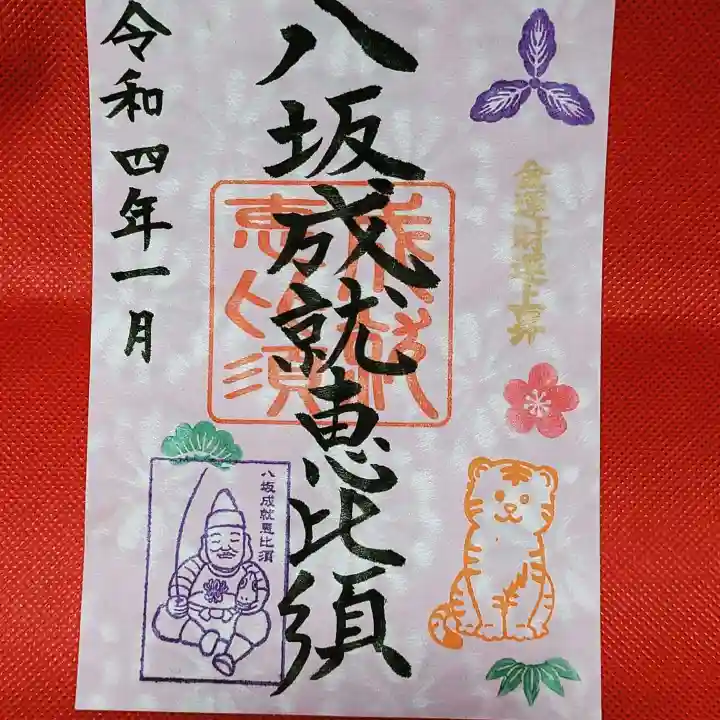 金運財運上昇
八坂成就恵比須
成就
恵比須
令和四年一月
八坂成就恵比須